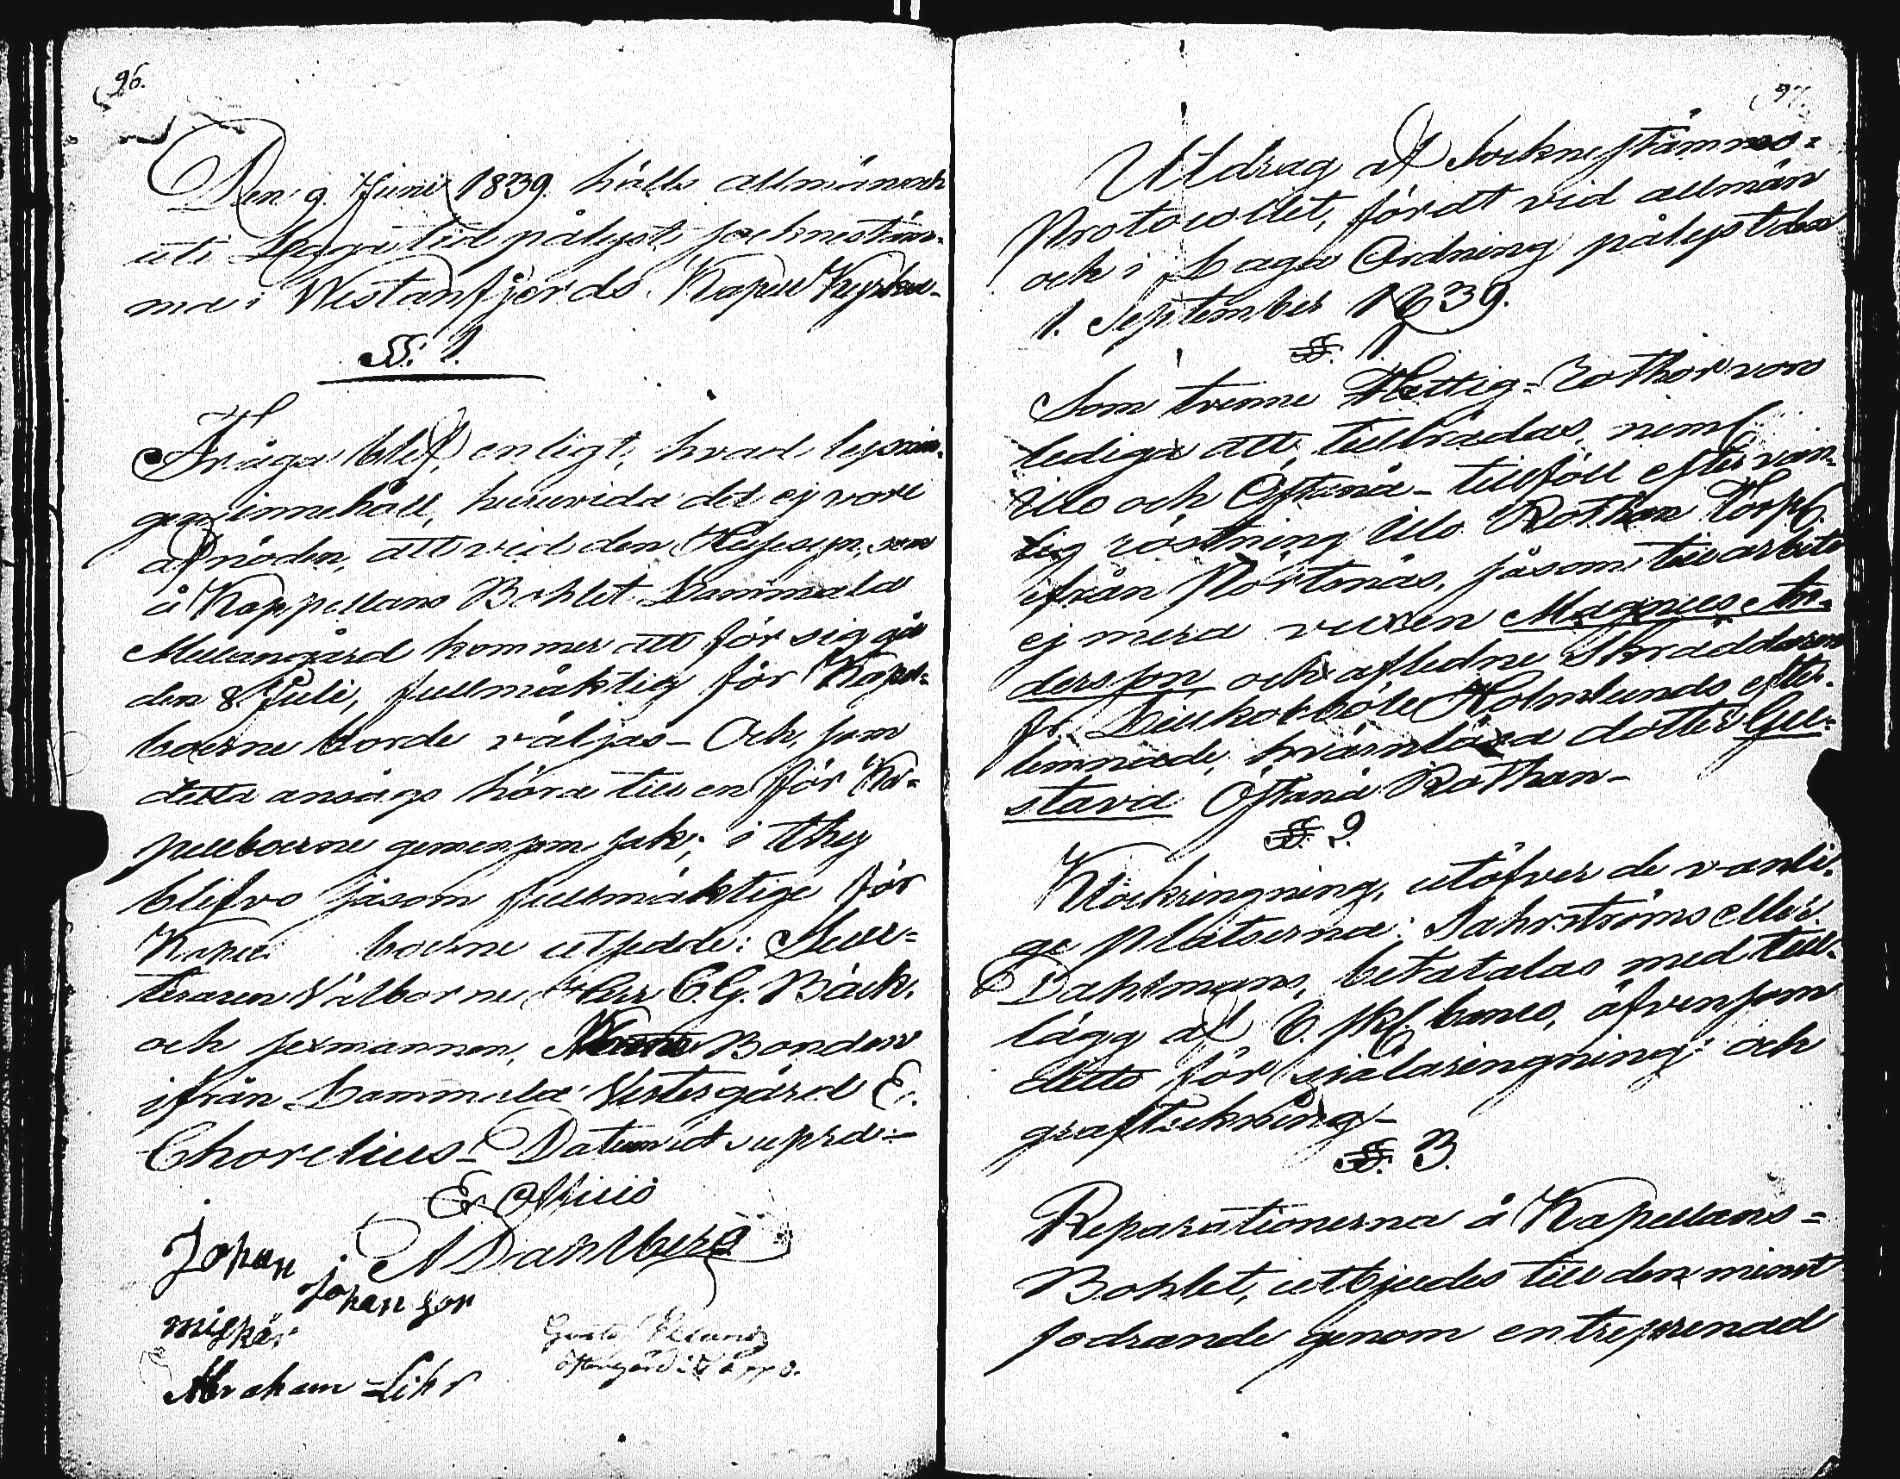 96.
Den 9. Junii 1839. hålls allmän och
uti Laga tid pålyst socknestäm-
ma i Westanfjerds Kapell Kyrka.
§§. 1.
Fråga blef, enligt, hvad lysnin-
gen innehåll, huruvida det ej vore
af nöden, att vid den Husesyn, som
å Kappellans Bohlet Lammala
Mellangård kommer att för sig gå
den 8 Juli, fullmäktig för Kapell-
boerne borde väljas – Och, som
detta ansågs höra till en för Ka-
pellboerne gemensam sak; i thy
blefvo såsom fullmäktige för
Kapell boerne utsedde:
Välborne Herr C. G. Bäck.
och sexmannen, Bonden
ifrån Lammala Vestergård E.
Chorelius – Datum ut supra –
Ex Officio
A Dahlberg
Johan
Johansson
misskär
Abraham Lihr
Gustaf
97.
Utdrag af Sockneståmmo-
Protocollet, fördt vid allmän
och i Laga Ordning pålyst den
1. September 1839.
§§. 1.
Som trenne Fattig-Rothar voro
lediga att tillträdas, neml.
Ulo och Östanå – tillföll efter van-
lig röstning Ulo Rothan Torp.
ifrån Nortnäs, såsom till arbete
ej mera vuxen Magnus An-
dersson och afledne Skräddaren
fr. Billkobböle Holmlunds efter-
lemnade, dotter Gu-
stava Östanå Rothan –
§§. 2.
Klockringning, utöfver de vanli-
ga platserna: Sahrströms eller
Dahlmans, betatalas med till-
lägg af 6. sk. banco, äfvensom
ditto för själaringning; och
graftickning –
§§. 3.
Reparationerna å Kapellans-
Bohlet, utbjudes till den minst
fodrande genom entreprenad